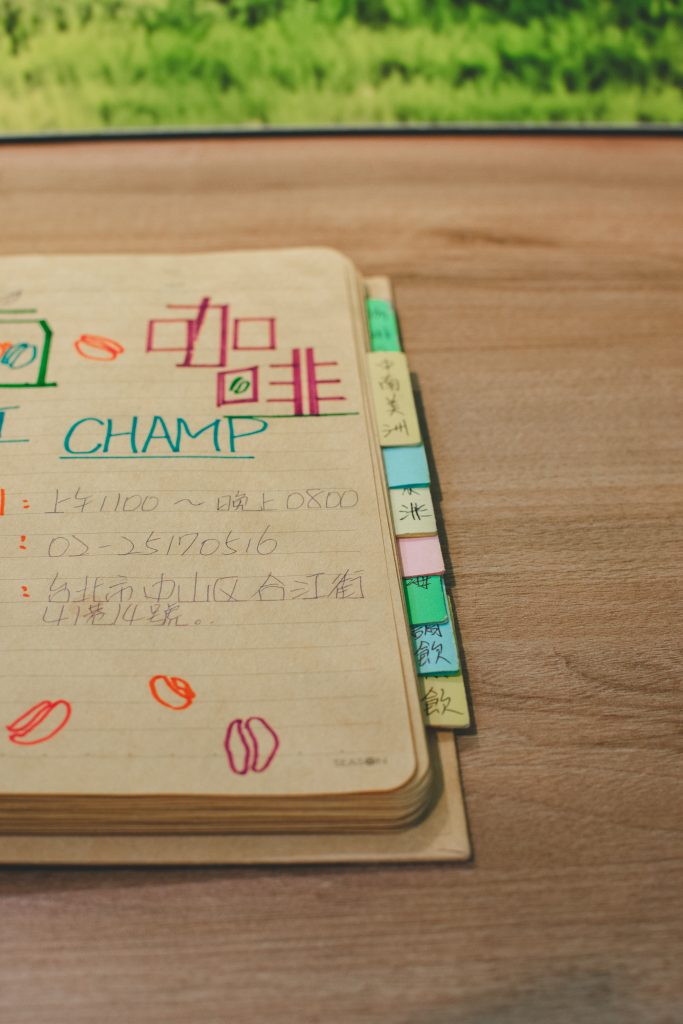 咖
啡
CHAMP
: 上午1100 ～ 晚上0800
: 02-25170516
: 台北市中山区合江街
41巷14號..
SEASON
中南美洲
洲
飲
調飲